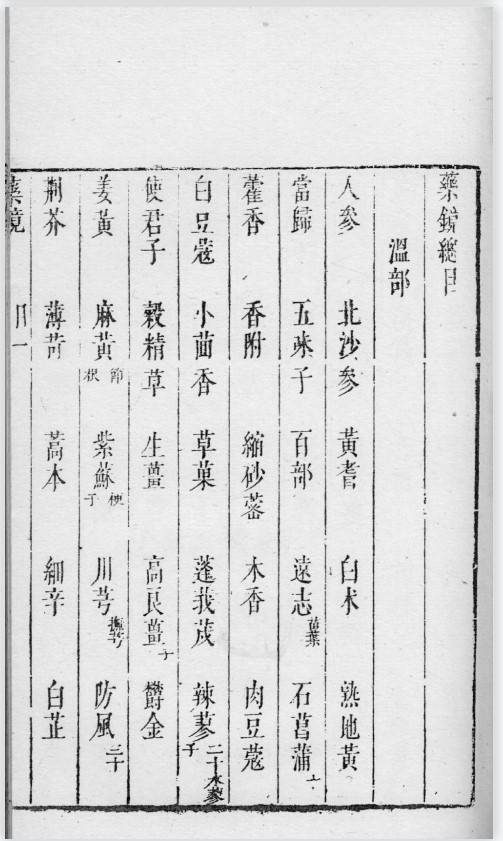 藥鏡總目
溫部
人參 北沙參 黃耆 白术 熟地黃
當歸 五味子 百部 遠志苗葉 石菖蒲
藿香 香附 縮砂蔤 木香 肉豆蔻
白豆蔻 小茴香 草菓 蓬莪茂 辣蓼子二十水蓼
使君子 穀精草 生薑 高良薑子 欝金
姜黃 麻黃節根 紫蘇梗子 川芎撫芎 防風三十
荆芥 薄苛 藁本 細辛 白芷
藥鏡 目一